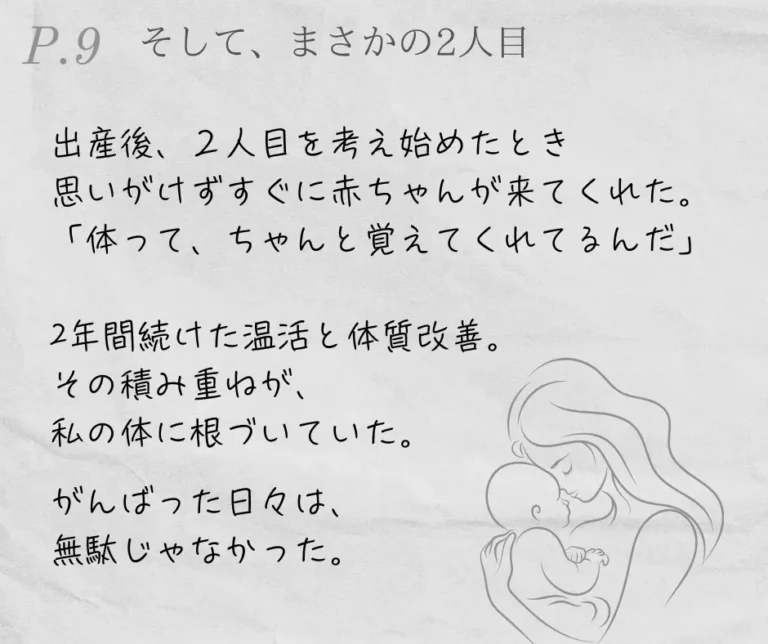 P.9 そして、まさかの2人目
出産後、２人目を考え始めたとき
思いがけずすぐに赤ちゃんが来てくれた。
「体って、ちゃんと覚えてくれてるんだ」
2年間続けた温活と体質改善。
その積み重ねが、
私の体に根づいていた。
がんばった日々は、
無駄じゃなかった。